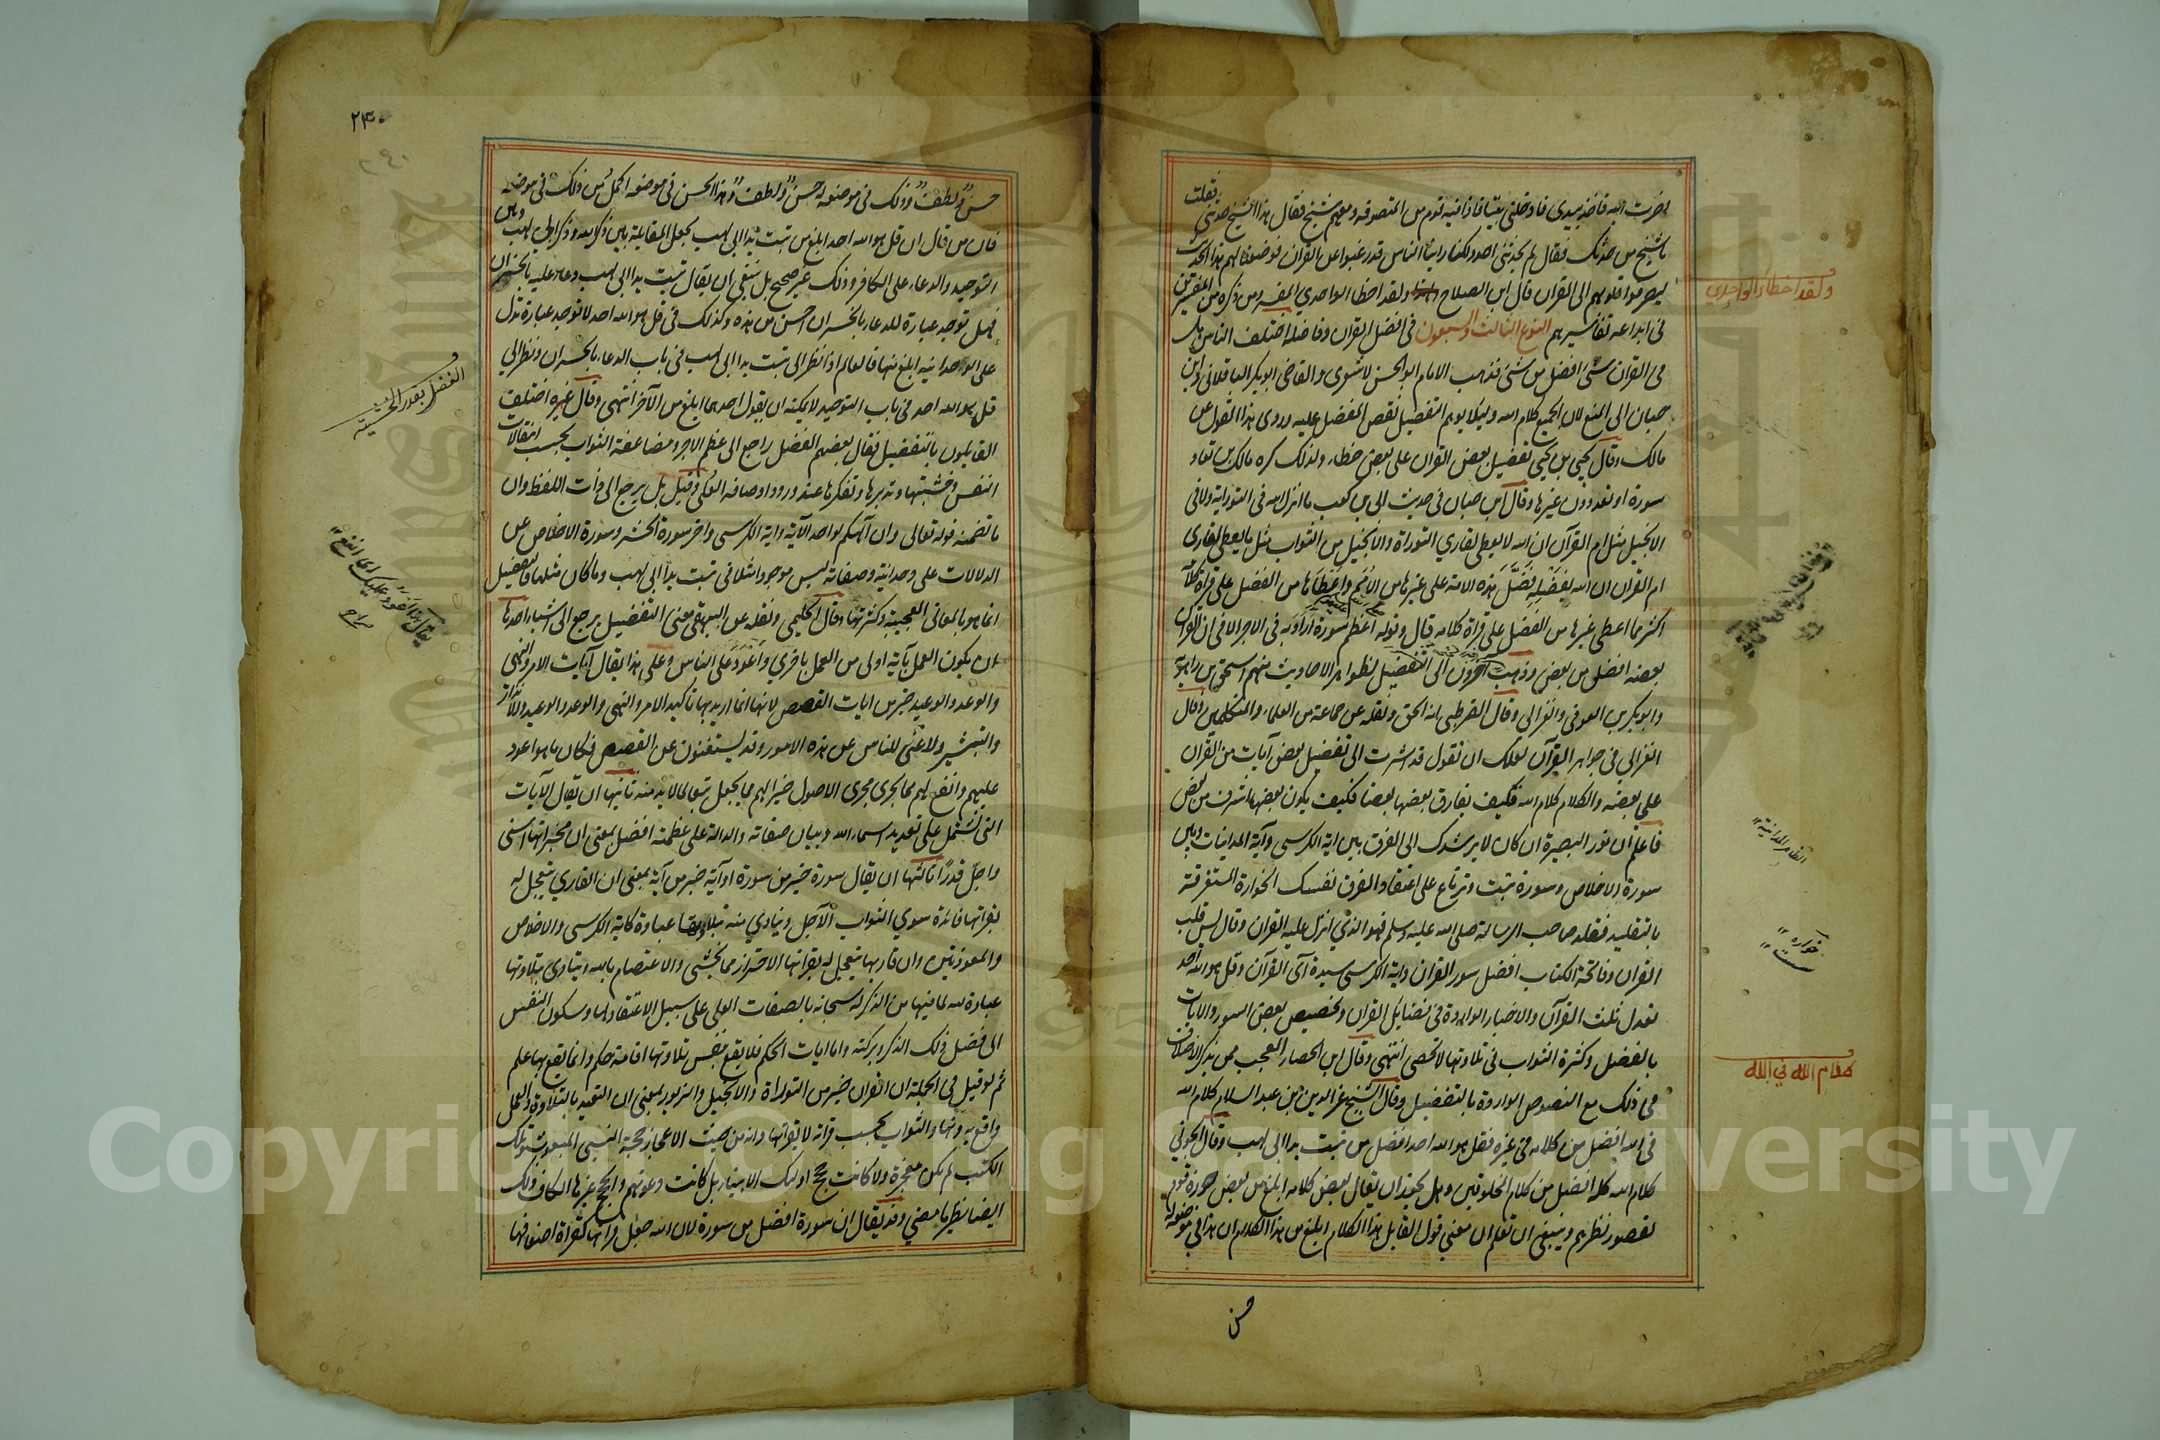 لضربت اليه فاخذ بيدي فادخلني بيتا فاذا فيه قوم من المتصوفة ومعهم شيخ فقال هذا الشيخ حدثني فقلت
يا شيخ من حدثك فقال لم يحدثني احد ولكنا راينا الناس قد رغبوا عن القران فوضعنا لهم هذا الحديث
ليصرفوا قلوبهم الى القران قال ابن الصلاح ولقد اخطا الواحدي المفسر ومن ذكره من المفسرين
في ايداعه تفاسيرهم النوع الثالث والسبعون في افضل القران وفاضله اختلف الناس هل
في القران شئ افضل من شئ فذهب الامام ابو الحسن الاشعري والقاضي ابو بكر الباقلاني وابن
حبان الى المنع لان الجميع كلام الله وليلا يوهم التفضيل نقص المفضل عليه وروى هذا القول عن
مالك وقال يحيى بن يحيى تفضيل بعض القران على بعض خطاء ولذلك كره مالك بن تعاد
سورة او تعدد دون غيرها وقال ابن حبان في حديث ابي بن كعب ما انزل الله في التوراية ولا في
الانجيل مثل ام القرآن ان الله لا يعطي لقاري التوراة والانجيل من الثواب مثل ما يعطي لقاري
ام القران ان الله بفضله فضل هذه الامة على غيرها من الامم واعطاها من الفضل على قراة كلامه
اكثر مما اعطى غيرها من الفضل على قراة كلامه قال وقوله اعظم سورة اراد به في الاجر لا في ان القران
بعضه افضل من بعض وذهب آخرون الى التفضيل لظواهر الاحاديث منهم اسحق بن راهويه
وابو بكر بن العربي والغزالي وقال القرطبي انه الحق ونقله عن جماعة من العلماء والمتكلمين وقال
الغزالي في جواهر القرآن لعلك ان تقول قد اشرت الى تفضيل بعض آيات من القرآن
على بعضه والكلام كلام الله فكيف يفارق بعضها بعضا فكيف يكون بعضها اشرف من بعض
فاعلم ان نور البصيرة ان كان لا يرشدك الى الفرق بين اية الكرسي وآية المداينات وبين
سورة الاخلاص وسورة تبت وترتاع على اعتقاد الفرق نفسك الخوارة المستغرقة
بالتقليد فقلد صاحب الرسالة صلى الله عليه وسلم فهو الذي انزل عليه القران وقال يس قلب
القران وفاتحة الكتاب افضل سور القران واية الكرسي سيدة آى القرآن وقل هو الله احد
تعدل ثلث القرآن والاخبار الواردة في فضايل القران وتخصيص بعض السور والايات
بالفضل وكثرة الثواب في تلاوتها لا تحصى انتهى وقال ابن الحصار العجب ممن يذكر الاختلاف
في ذلك مع النصوص الواردة بالتفضيل وقال الشيخ عز الدين بن عبد السلام كلام الله
في الله افضل من كلامه في غيره فقل هو الله احد افضل من تبت يدا ابي لهب وقال الجويني
كلام الله كله افضل من كلام المخلوقين وهل يجوز ان يقال بعض كلامه ابلغ من بعض جوزه قوم
لقصور نظرهم وينبغي ان تعلم ان معنى قول القايل هذا الكلام ابلغ من هذا الكلام ان هذا في موضعه له
حسن
ولقد اخطاء الواحدي
الظاهر المداينة
خواره
سست
كلام الله في الله
٢٤٠
حسن ولطف وذلك في موضعه له حسن ولطف وهذا الحسن في موضعه اكمل من ذلك في موضعه
فان من قال ان قل هو الله احد ابلغ من تبت يدا ابي لهب يجعل المقابلة بين ذكر الله وذكر ابي لهب وبين
التوحيد والدعاء على الكافر وذلك غير صحيح بل ينبغي ان يقال تبت يدا ابي لهب دعاء عليه بالخسران
فهل توجد عبارة للدعاء بالخسران احسن من هذه وكذلك في قل هو الله احد لا توجد عبارة تدل
على الوحدانية ابلغ منها فالعالم اذا نظر الى تبت يدا ابي لهب في باب الدعاء بالخسران ونظر الى
قل هو الله احد في باب التوحيد لا يمكنه ان يقول احدهما ابلغ من الآخر انتهى وقال غيره اختلف
القايلون بالتفضيل فقال بعضهم الفضل راجع الى عظم الاجر ومضاعفة الثواب بحسب انتقالات
النفس وخشيتها وتدبرها وتفكرها عند ورود اوصافه العلى وقيل بل يرجع الى ذات اللفظ وان
ما تضمنه قوله تعالى وان آلهكم اله واحد الآية واية الكرسي واخر سورة الحشر وسورة الاخلاص من
الدلالات على وحدانيته وصفاته ليس موجودا مثلا في تبت يدا ابي لهب وما كان مثلها فالتفضيل
انما هو بالمعاني العجيبة وكثرتها وقال الحليمي ونقله عن البيهقي معنى التفضيل يرجع الى اشياء احدها
ان يكون العمل بآية اولى من العمل باخري واعود على الناس وعلى هذا يقال آيات الامر والنهي
والوعد والوعيد خير من ايات القصص لانها انما اريد بها تاكيد الامر والنهي والوعد والوعيد والانذار
والتبشير ولا غنى للناس عن هذه الامور وقد يستغنون عن القصص فكان ما هو اعود
عليهم وانفع لهم مما يجري مجرى الاصول خيرا لهم مما يجعل تبعا لما لا بد منه ثانيها ان يقال الآيات
التي تشتمل على تعديد اسماء الله وبيان صفاته والدالة على عظمته افضل بمعنى ان مخبراتها اسنى
واجل قدرا ثالثها ان يقال سورة خير من سورة او آية خير من آية بمعنى ان القاري يتعجل له
بقراتها فائدة سوي الثواب الآجل ويتادي منه بتلاوتها عبادة كاية الكرسي والاخلاص
والمعوذتين وان قاريها يتعجل له بقراتها الاحتراز مما يخشى والاعتصام بالله ويتادى بتلاوتها
عبادة لله لما فيها من الذكر له سبحانه بالصفات العلى على سبيل الاعتقاد لها وسكون النفس
الى فضل ذلك الذكر وبركته واما ايات الحكم فلا يقع بنفس تلاوتها اقامة حكم وانما يقع بها علم
ثم لو قيل في الجملة ان القران خير من التوراة والانجيل والزبور بمعنى ان التعبد بالتلاوة والعمل
واقع به دونها والثواب بحسب قراته لا بقراتها وانه من حيث الاعجاز حجة النبي المبعوث وتلك
الكتب لم تكن معجزة ولا كانت حجج اوليك الانبياء بل كانت دعوتهم والحجج غيرها لكان ذلك
ايضا نظير ما مضي وقد يقال ان سورة افضل من سورة لان الله جعل قراتها كقراة اضعافها
الفضل بقدر الخشية
يقال هذا اعود عليك اى انفع
صراح